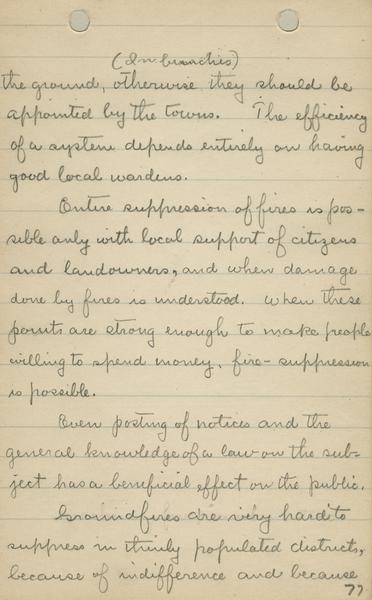 (In branches)
the ground, otherwise they should be
appointed by the towns. The efficiency
of a system depends entirely on having
good local wardens.
Entire suppression of fires is pos-
sible only with local support of citizens
and landowners, and when damage
done by fires is understood. When these
points are strong enough to make people
willing to spend money, fire-suppression
is possible.
Even posting of notices and the
general knowledge of a law on the sub-
ject has a beneficial effect on the public.
Groundfires are very hard to
suppress in thinly populated districts,
because of indifference and because
77